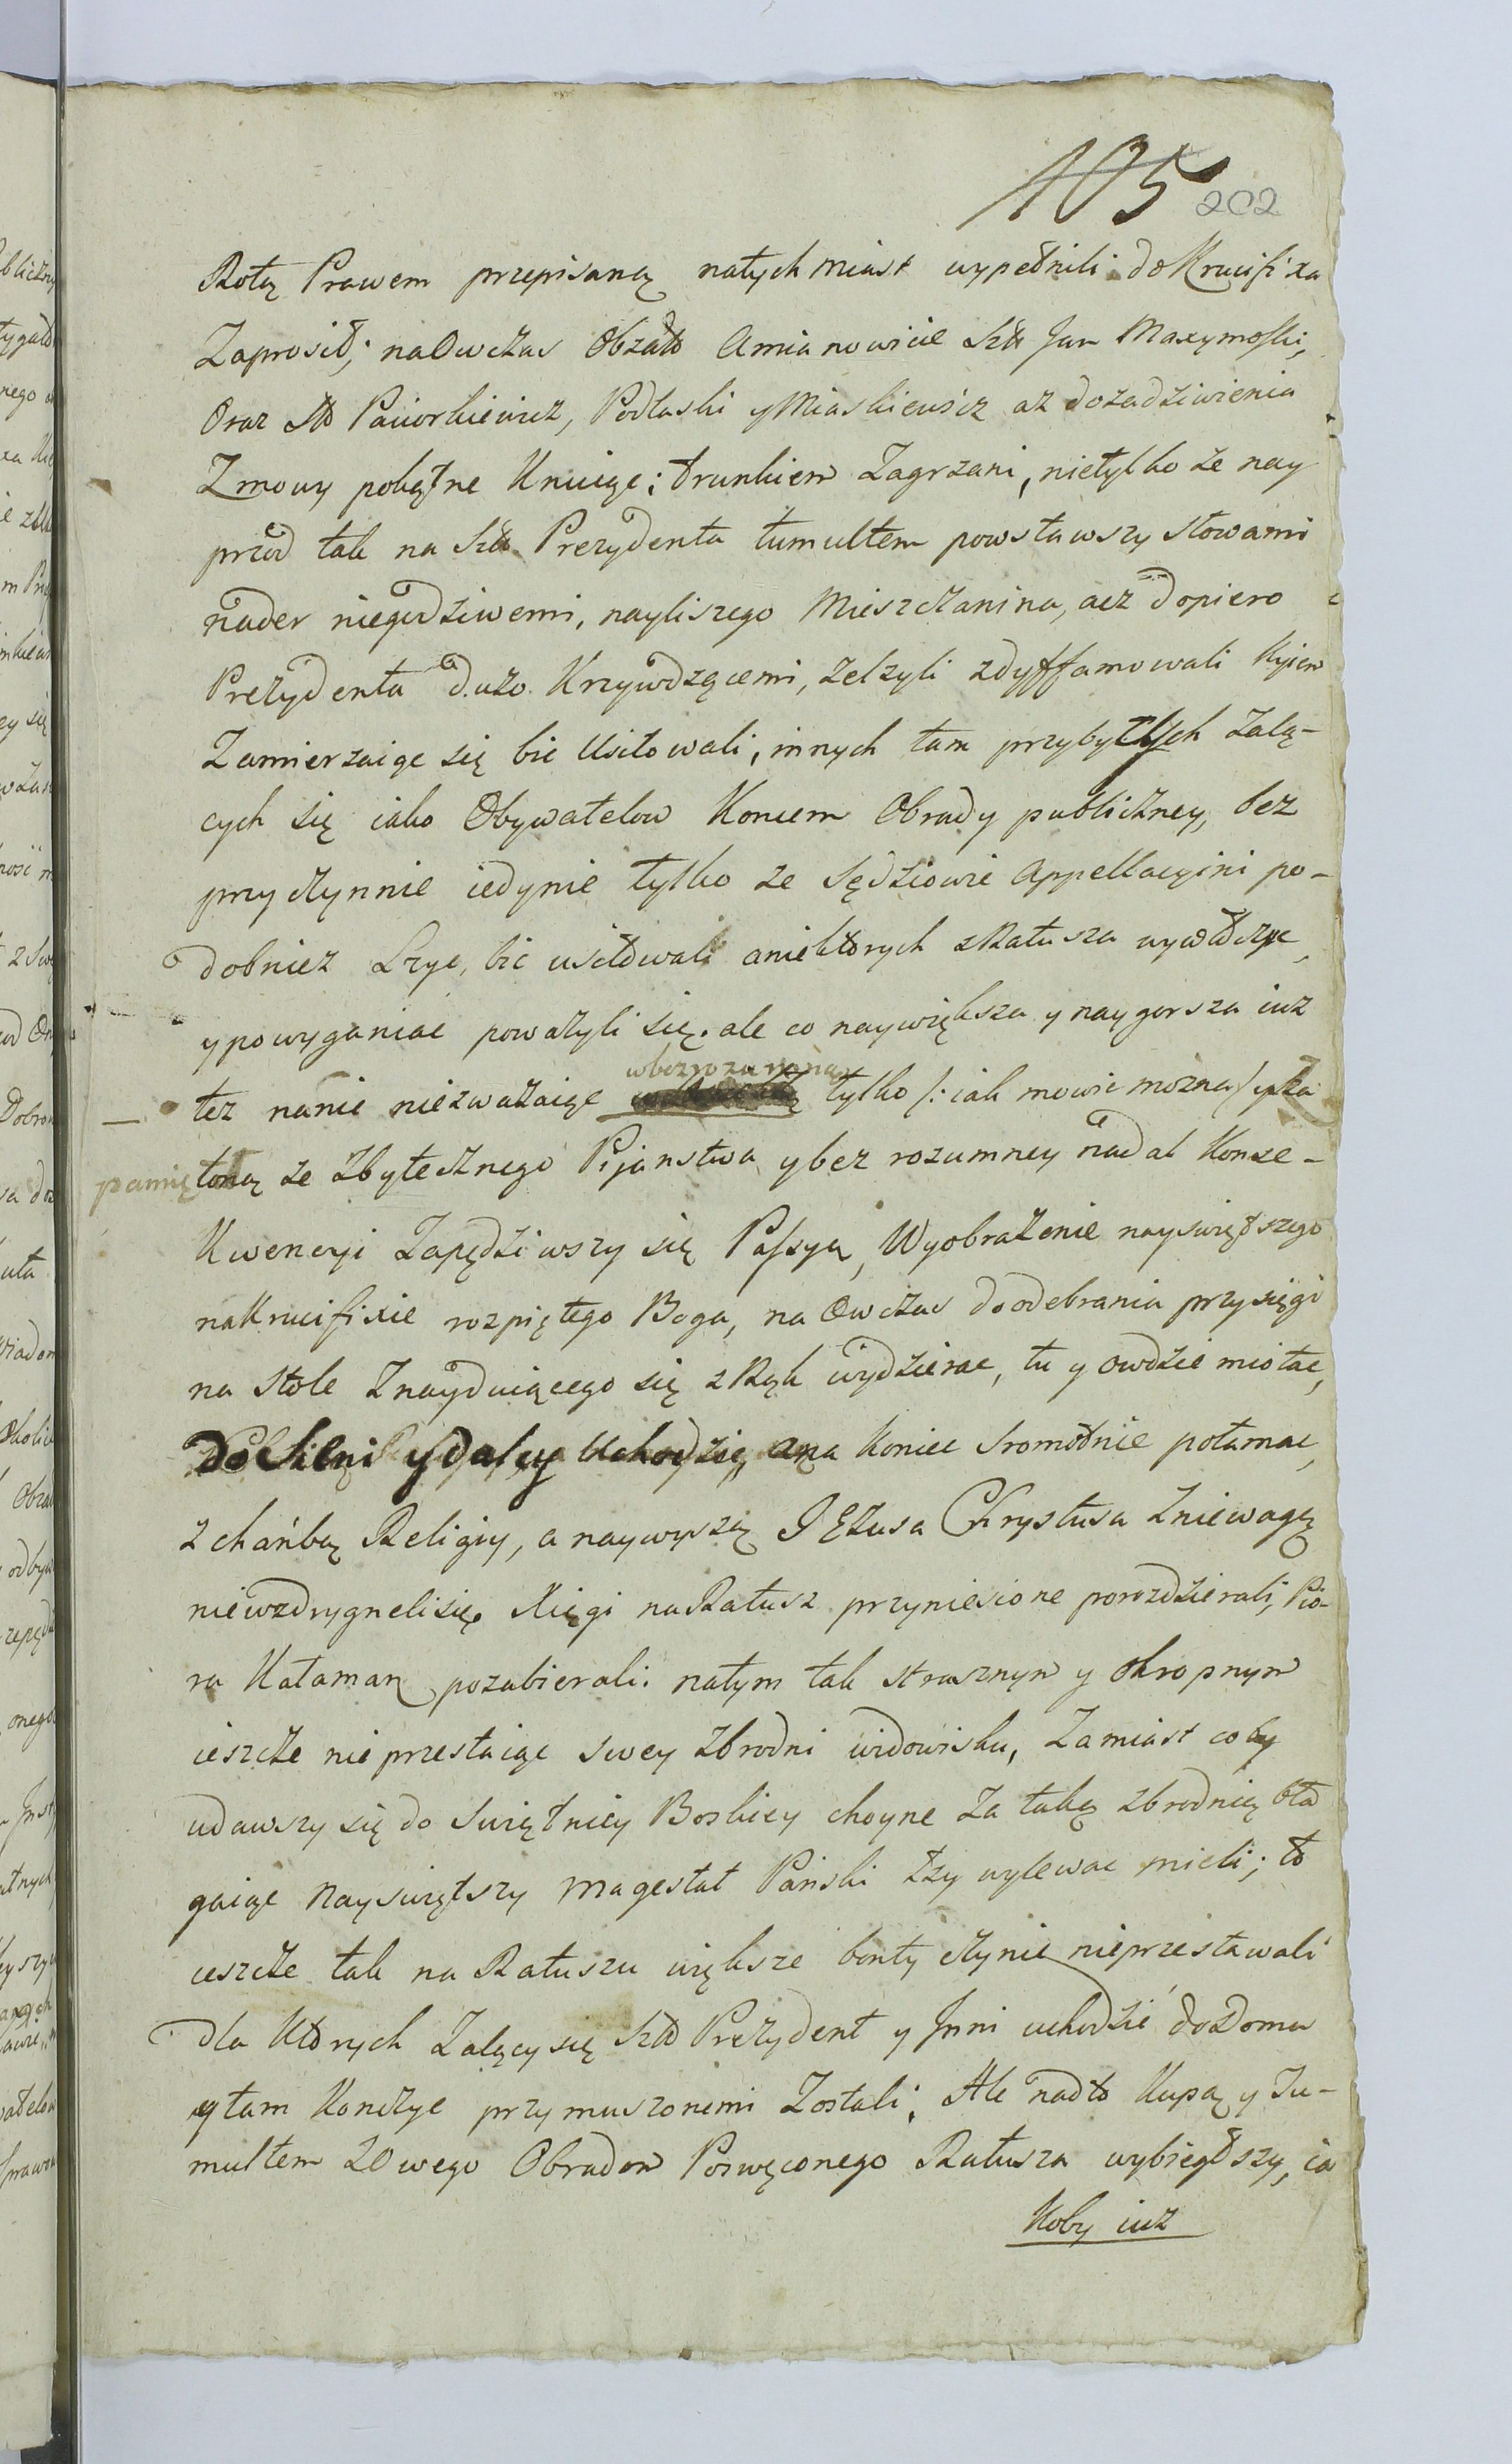 105 202
Rotę Prawem przepisaną natychmiast wypełnili do Krucifixa
Zaprosił; na Owczas Obzało Amianowicie Szło Jan Maxymoski,
Oraz Sło Paiorkiewicz, Podlaski y Miaskiewicz az do zadziwienia
Zmowy pokątne Knuiąc; trunkiem Zagrzani, nietylko ze nay
przod tak na Szło Prezydenta tumultem powstawszy słowami
nader niegodziwemi, nayliszego Mieszczanina, acz dopiero
Prezydenta dużo Krzywdzącemi, zelzyli zdyffamowali Kyiem
Zamierzaiąc się bić Usiłowali, innych tam przybyłych Zalą-
cych się iako Obywatelow Koncem Obrady publiczney, bez
przyczynnie iedynie tylko ze Sędziowie Appellacyini po-
dobniez Lzyc, bić usiłowali a niektorych z Ratusza wywłóczyc,
y powyganiac poważyli się. ale co naywiększa y naygorsza iuz
tez na nic niezważaiąc wbezrozumną tylko /: iak mowić można /
pamiętoną ze Zbytecznego Pijanstwa y bez rozumney nadal Konse-
Kwencyi Zapędziwszy się Passyą, Wyobrażenie nayswiętszego
na Krucifixie rozpiętego Boga, na Owczas do odebrania przysięgi
na Stole Znayduiącego się z Rąk wydzierac, tu y owdzie miotac,
Do Sieni y daley Uchodzić, a na koniec Sromotnie połamac,
z chańbą Religiy, a naywyszą JĘzusa Chrystusa Zniewagą
niewzdrygneli się. Xięgi na Ratusz przyniesione porozdzierali, Pio-
ra Kałamarz pozabierali: na tym tak strasznym y okropnym
ieszcze nie przestaiąc swey Zbrodni widowisku, Zamiast coby
udawszy się do Swiętnicy Boskiey choyne Za takę zbrodnię bła
gaiąc Nayswiętszy Magestat Panski Łzy wylewac mieli; to
ieszcze tak na Ratuszu większe bonty czynic nieprzestawali
dla Których Zalący się Szło Prezydent y Inni uchodzić do Domu
y tam Konczyc przymuszonemi Zostali. Ale nadto Kupą y Tu-
multem z Owego Obradom Poswęconego Ratusza wybiegłszy, ia
Koby iuz